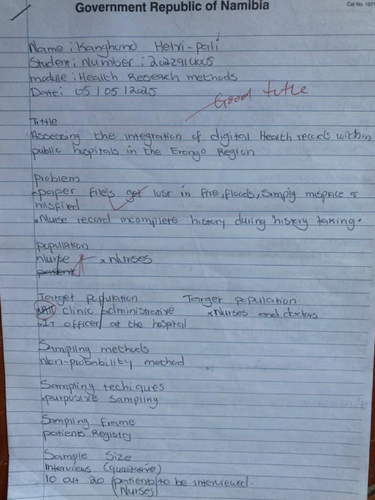 Government Republic of Namibia
Name : Kanghono Hetvi-pali
Student Number :
module : Health Reseach methods
Date : 05 / 05 / 2025
Good title
Tittle
Assessing the integration of digital Health records within
public hospitals in the Erongo Region
problem
paper files get lost in fire, floods, simply mispace or
misfiled
Nurse record incomplete history during history taking.
population
Nurse x Nurses
patient
Target population Targer population
All clinic administrative x Nurses and doctors
IT officer at the hospital
Sampling methods
Non-probability method
Sampling techiques
purposive sampling
Sampling Frame
patients Registry
Sample Size
Interviews (qualitative)
10 out 20 (patients) to be interviewed
(Nurses)